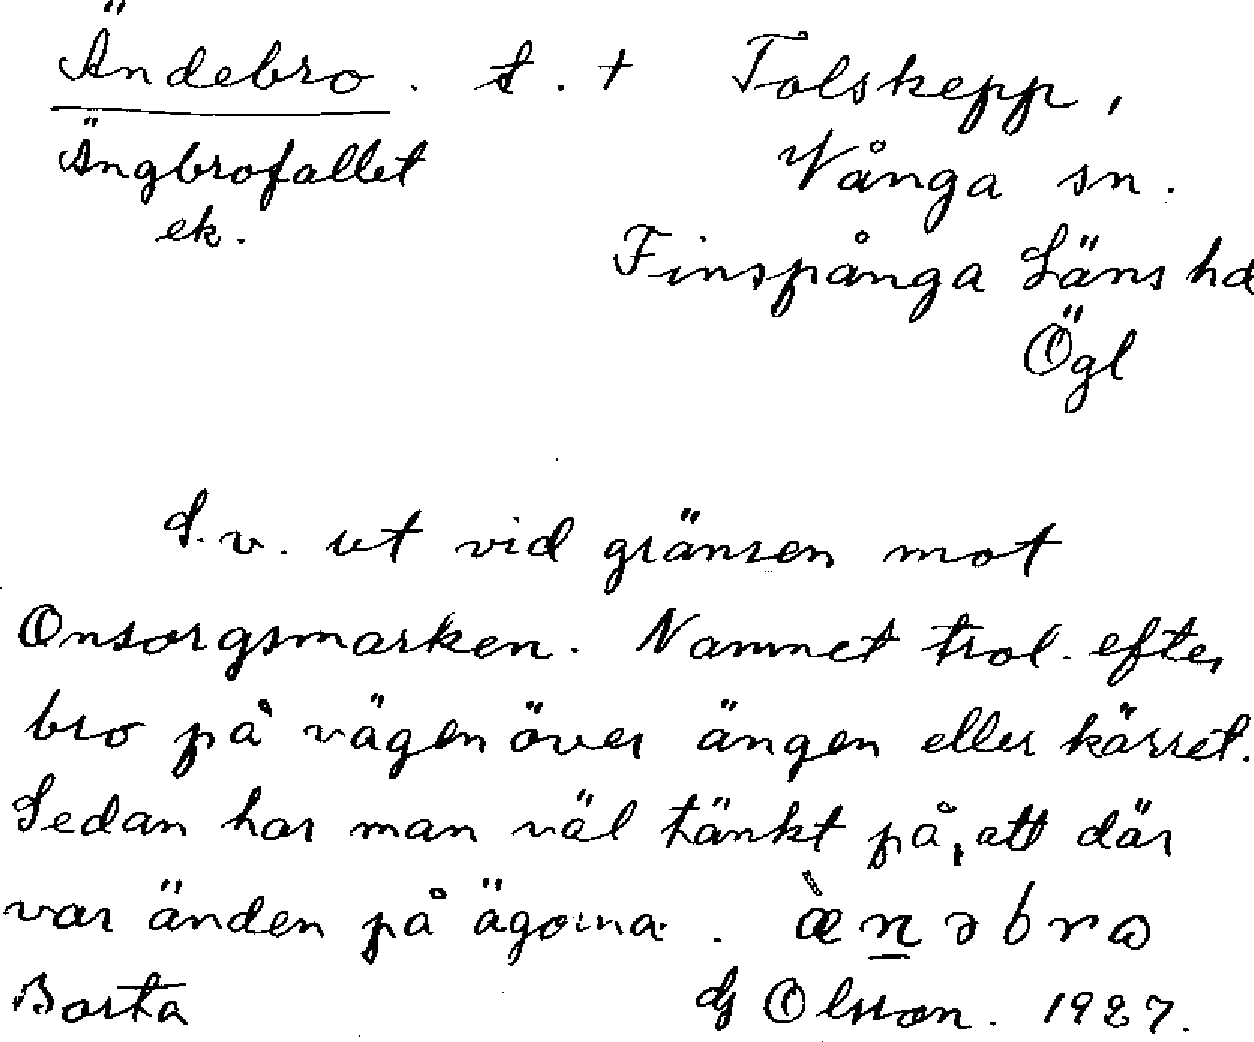 Ändebro. t. + Tolskepp,
Ängbrofallet Vånga sn.
ek. Finspånga Läns hd
Ögl
S.v. ut vid gränsen mot
Onsorgsmarken. Namnet trol. efter
bro på vägen över ängen eller kärret.
Sedan har man väl tänkt på, att där
var änden på ägorna. æ̀n̲əbrɷ
Borta G Olsson. 1927.